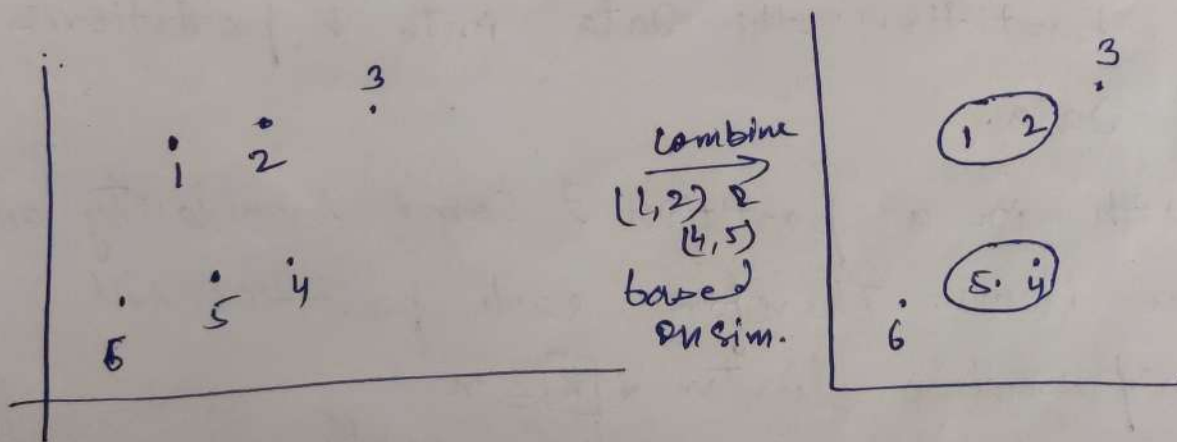 3
1 2
5 4
6
combine
(1,2) &
(4,5)
based
on sim.
3
1 2
5. 4
6